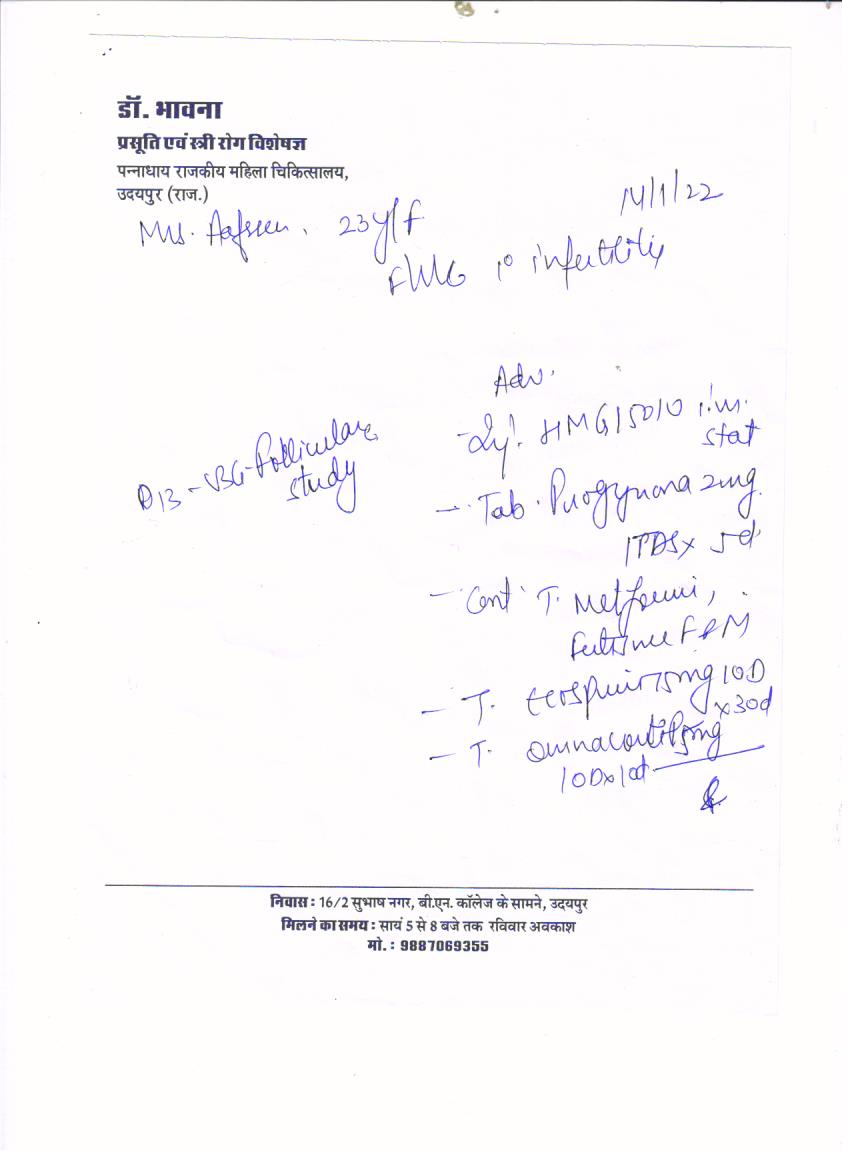 डॉ. भावना
प्रसूति एवं स्त्री रोग विशेषज्ञ
पन्नाधाय राजकीय महिला चिकित्सालय,
उदयपुर (राज.)
14/1/22
Mrs. Aafreen. 23y/f
1° infertility
Adv.
- Inj. HMG 150 IU i.m.
stat
D13 - Follicular
study
- Tab. Progynova 2mg
1TDS x 5d
- Cont T. Metformin,
F & M
- T. ecosprin 75mg 1OD
x 30d
- T. omnacortil 5mg
1OD x 10d
निवास : 16/2 सुभाष नगर, बी.एन. कॉलेज के सामने, उदयपुर
मिलने का समय : सायं 5 से 8 बजे तक रविवार अवकाश
मो. : 9887069355